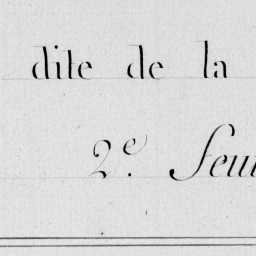 dite de la
2.e Feui